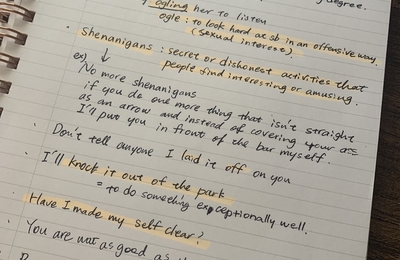 degree.
ogling her to listen
ogle : to look hard at sb in an offensive way.
(sexual interest)
Shenanigans : secret or dishonest activities that
people find interesting or amusing.
ex)
No more shenanigans
if you do one more thing that isn't straight
as an arrow and instead of covering your ass
I'll put you in front of the bar myself.
Don't tell anyone I laid it off on you
I'll knock it out of the park
= to do something exceptionally well.
Have I made my self clear?
You are not as good as